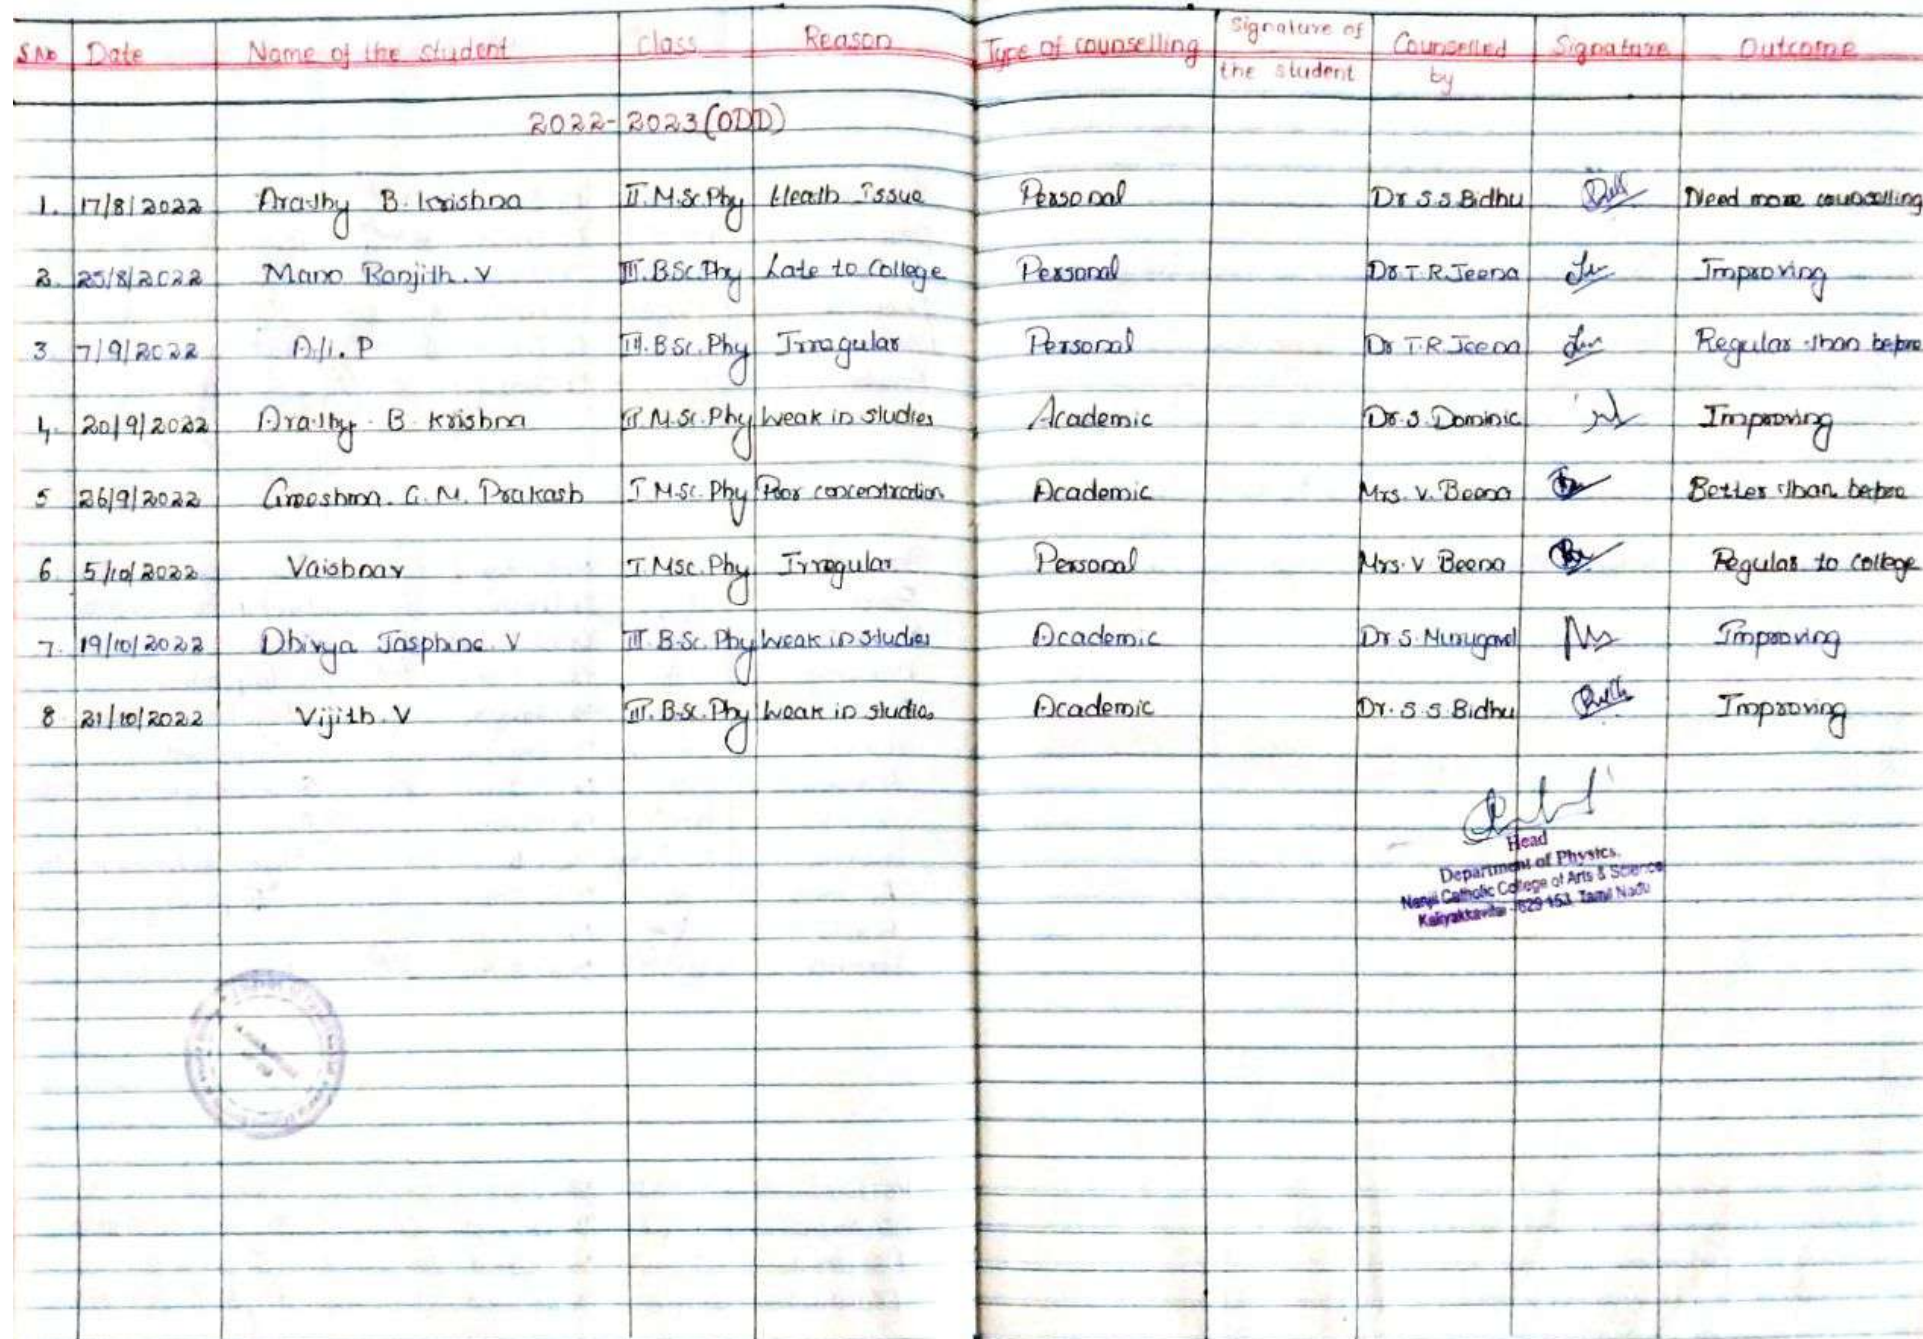 S.No Date Name of the student Class Reason Type of counselling Signature of the student Counselled by Signature Outcome
2022-2023 (ODD)
1. 17/8/2022 Arathy B. Krishna II. M.Sc. Phy Health Issue Personal Dr S.S Bidhu Need more counselling
2. 25/8/2022 Mano Ranjith. V III. B.Sc. Phy Late to College Personal Dr T.R. Jeena Improving
3 7/9/2022 P III. B.Sc. Phy Irragular Personal Dr T.R. Jeena Regular than before
4. 20/9/2022 Arathy. B. Krishna II M.Sc. Phy Weak in studies Academic Dr. S. Dominic Improving
5 26/9/2022 Greeshma. G. M. Prakash I M.Sc. Phy Poor concentration Academic Mrs. V. Beena Better than before
6. 5/10/2022 Vaishnav I. Msc. Phy Irregular Personal Mrs. V Beena Regular to college
7. 19/10/2022 Dhivya Jasphine. V III. B.Sc. Phy Weak in studies Academic Dr. S. Murugavel Improving
8 21/10/2022 Vijith. V III. B.Sc. Phy Weak in studies Academic Dr. S. S Bidhu Improving
Head
Department of Physics,
Nanjil Catholic College of Arts & Science
Kaliyakkavilai - 629 153, Tamil Nadu